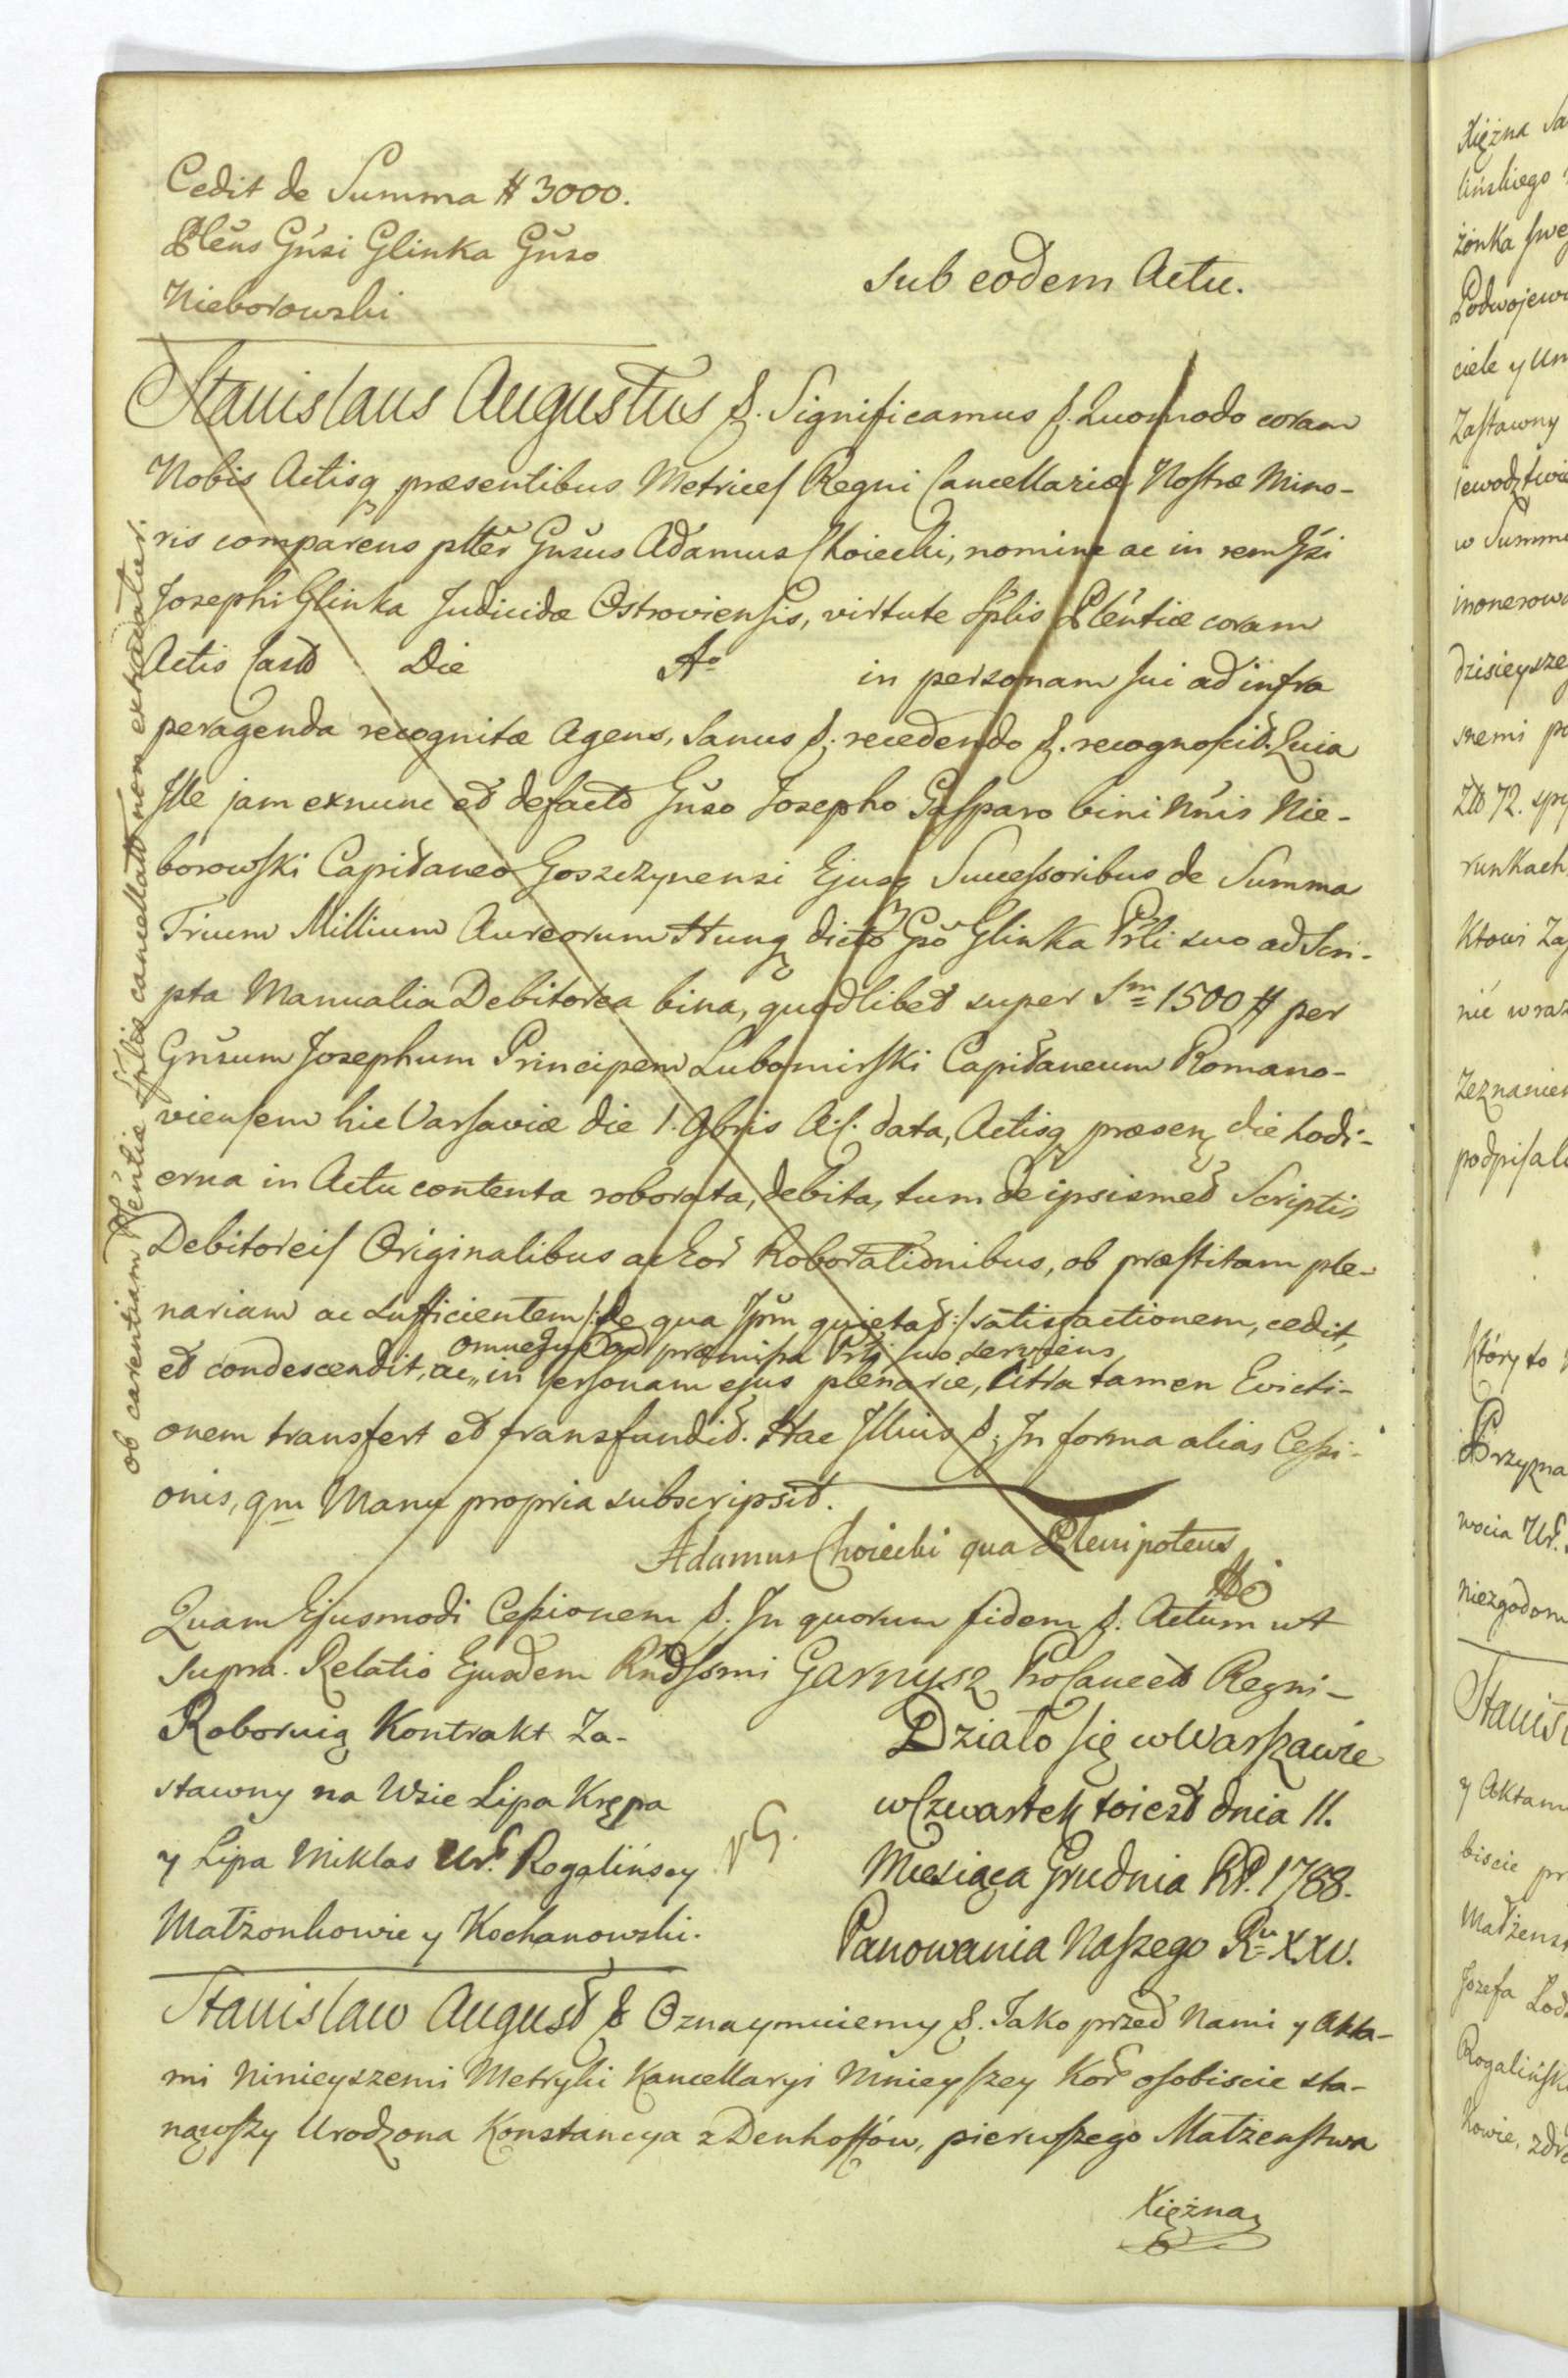 Cedit de Summa # 3000.
Pleūs Gūsi Glinka Gūso
Nieborowski
Sub eodem Actu.
Stanislaus Augustus &. Significamus &. Quomodo coram
Nobis Actisq præsentibus Metrices Regni Cancellariæ Nostræ Mino-
ris comparens pltēr Gūsus Adamus Choiecki, nomine ac in rem Gsi
Josephi Glinka Judicidæ Ostroviensis, virtute Splis Plentiæ coram
Actis Castr Die Ao in personam sui ad infra
peragenda recognitæ Agens, Sanus &. recedendo &. recognoscit. Quia
Ille jam exnunc et defacto Gūso Josepho Gasparo bini Nnis Nie-
borowski Capitaneo Goszczynensi Ejusq Successoribus de Summa
Trium Millium Aureorum Hung dicto Gso Glinka Prli suo ad Scri-
pta Manualia Debitorea bina, quodlibet super Sm 1500 # per
Gūsum Josephum Principem Lubomirski Capitaneum Romano-
viensem hic Varsaviæ die 1. 9bris A. C. data, Actisq præsen die hodi-
erna in Actu contenta roborata, debita, tum de ipsismet Scriptis
Debitoreis Originalibus ac Eor Roborationibus, ob præstitam ple-
nariam ac sufficientem /: de qua Ipm quietat :/ satisfactionem, cedit,
et condescendit, ac „ in personam ejus plenarie, Citra tamen Evicti-
omne jus ad præmissa Prli suo serviens
onem transfert et transfundit. Hac Illius &. In forma alias Cessi-
onis, qm Manu propria subscripsit.
Adamus Choiecki qua Plenipotens
Quam Ejusmodi Cessionem &. In quorum fidem &. Actum ut
supra. Relatio Ejusdem Rndssmi Garnysz ProCancell Regni-
ob carentiam Plentiæ Splis cancellatr non extradatur.
Roboruią Kontrakt Za-
stawny na Wsie Lipa Krępa
y Lipa Miklas Ur. Rogalińscy
Małżonkowie y Kochanowski.
Działo się w Warszawie
w Czwartek toiest dnia 11.
Miesiąca Grudnia RP. 1788.
Panowania Naszego Ru XXV.
Stanisław August & Oznaymuiemy &. Iako przed Nami y Akta-
mi Ninieyszemi Metryki Kancellaryi Mnieyszey Kor osobiscie sta-
nąwszy Urodzona Konstancya z Denhoffów, pierwszego Małżeństwa
Xiężna
Xiężna Sa
lińskiego
żonka swe
Podwojewo
ciele y Um
Zastawny
w Summ
inonerowa
dzisieysze
szemi po
Zło 72.
runkach
Ktowi Za
nić wraz
Zeznanie
podpisal
Który to
Przyzna
wocia Ur.
Niezgodom
Stanis
y Aktam
biscie pr
Małżeńs
Jozefa
Rogalińsk
kowie, zdro